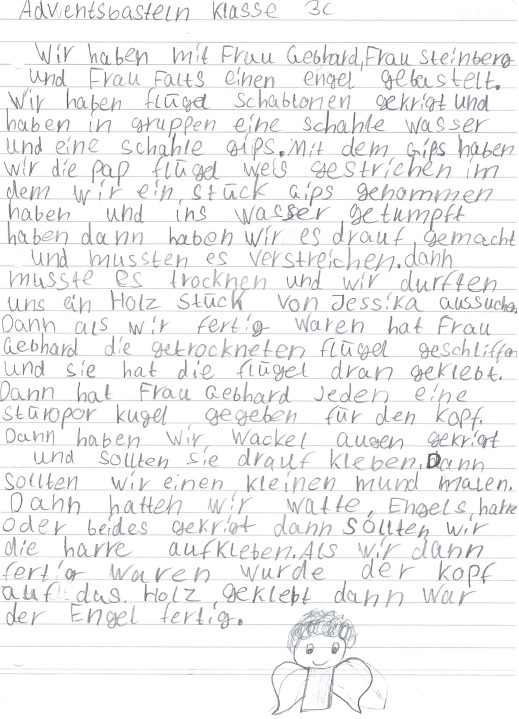 Adventsbasteln Klasse 3c
Wir haben mit Frau Gebhard, Frau Steinberg
und Frau Falts einen engel gebastelt.
Wir haben flügel schablonen gekrigt und
haben in gruppen eine schahle wasser
und eine schahle gips. Mit dem Gips haben
wir die pap flügel weis gestrichen im
dem wir ein stück Gips genommen
haben und ins wasser getumpft
haben dann haben wir es drauf gemacht
und mussten es verstreichen. dann
musste es trocknen und wir durften
uns ein Holz stück von Jessika aussuchen.
Dann als wir fertig waren hat Frau
Gebhard die getrockneten flügel geschliffen
und sie hat die flügel dran geklebt.
Dann hat Frau Gebhard Jeden eine
stüropor kugel gegeben für den kopf.
Dann haben wir Wackel augen gekrigt
und sollten sie drauf kleben. Dann
sollten wir einen kleinen mund malen.
Dann hatten wir watte, Engels harre
oder beides gekrigt dann sollten wir
die harre aufkleben. Als wir dann
fertig waren wurde der kopf
auf das Holz geklebt dann war
der Engel fertig.